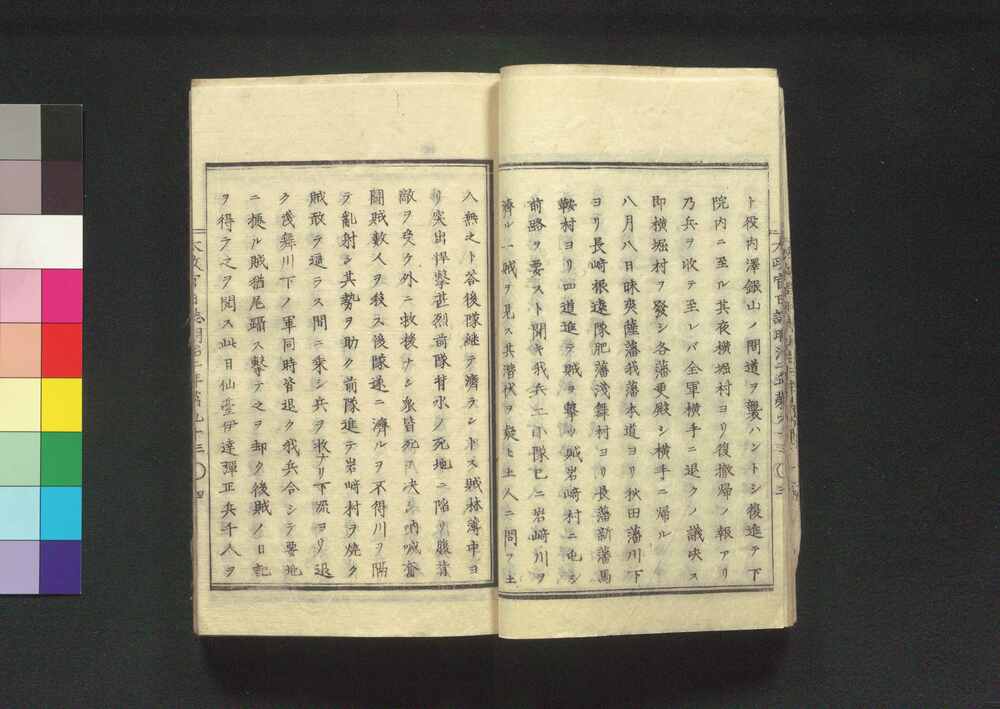 ト役内澤銀山ノ間道ヲ襲ハントシ復進テ下
院内ニ至ル其夜横堀村ヨリ復撤帰ノ報アリ
乃兵ヲ收テ至レバ全軍横手ニ退クノ議决ス
即横堀村ヲ發シ各藩更殿シ横手ニ帰ル
八月八日昧爽薩藩我藩本道ヨリ秋田藩川下
ヨリ長﨑根遠隊肥藩淺舞村ヨリ長藩新藩馬
鞍村ヨリ四道進テ賊ヲ撃ツ賊岩﨑村ニ屯シ
前路ヲ要スト聞キ我兵二小隊已ニ岩﨑川ヲ
濟ル一賊ヲ見ス其潜伏ヲ疑ヒ土人ニ問フ土
人無之ト答後隊継テ濟ラントス賊林薄中ヨ
リ突出悍撃甚烈前隊背水ノ死地ニ陥リ腹背
敵ヲ受ケ外ニ救援ナシ衆皆死ヲ决シ吶喊奮
闘賊數人ヲ殺ス後隊遂ニ濟ルヲ不得川ヲ隔
テ亂射シ其勢ヲ助ク前隊進テ岩﨑村ヲ焼ク
賊敢テ逼ラス間ニ乗シ兵ヲ收メリ下流ヨリ退
ク淺舞川下ノ軍同時皆退ク我兵合シテ要地
ニ據ル賊猶尾躡ス擊テ之ヲ却ク後賊ノ日記
ヲ得テ之ヲ閲ス此日仙臺伊達彈正兵千人ヲ